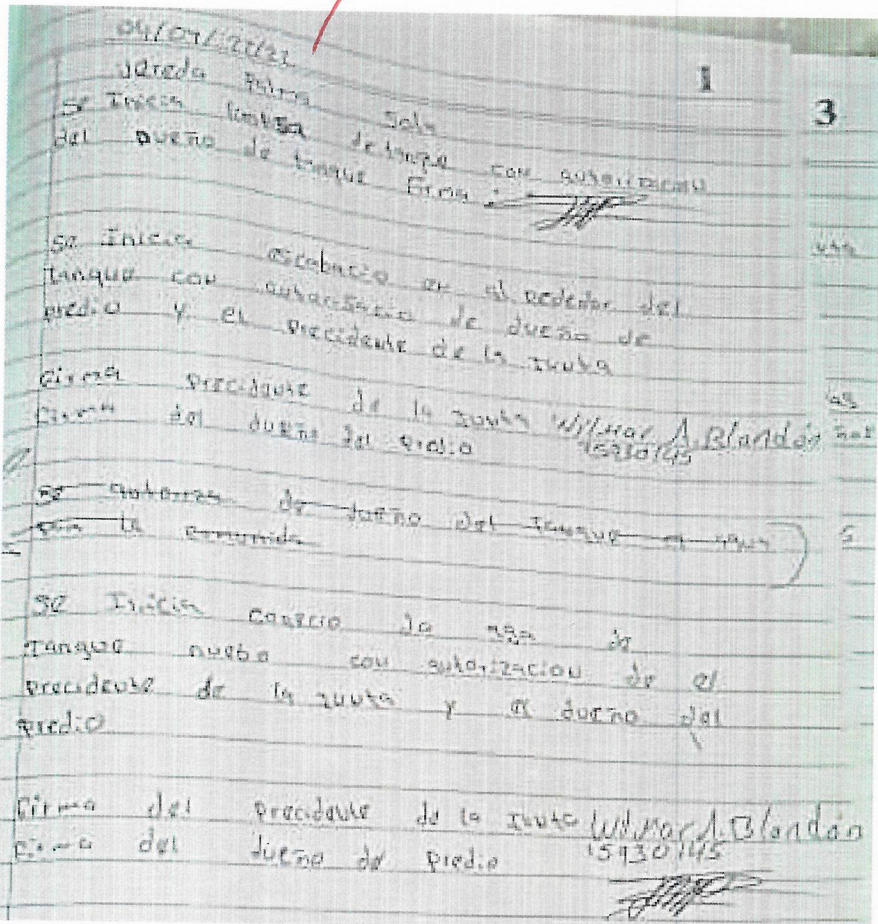 1
3
vereda Palma Sola
se Inicia limpsa de tanque con autorizacion
del Dueño de tanque Firma:
se Inicia escabacio en al rededor del
tanque con autorisacio de dueño de
predio y el Precidente de la Junta
Firma Precidente de la Junta Wilmar A. Blandón
Firma del dueño del predio 15930145
se autoriza de dueño del Tanque el agua
para la comunida
se Inicia conecio de aga de
Tanque nuebo con autorizacion de el
precidente de la Junta y el dueño del
predio
Firma del Precidente de la Junta Wilmar A. Blandón
Firma del dueño de Predio 15930145